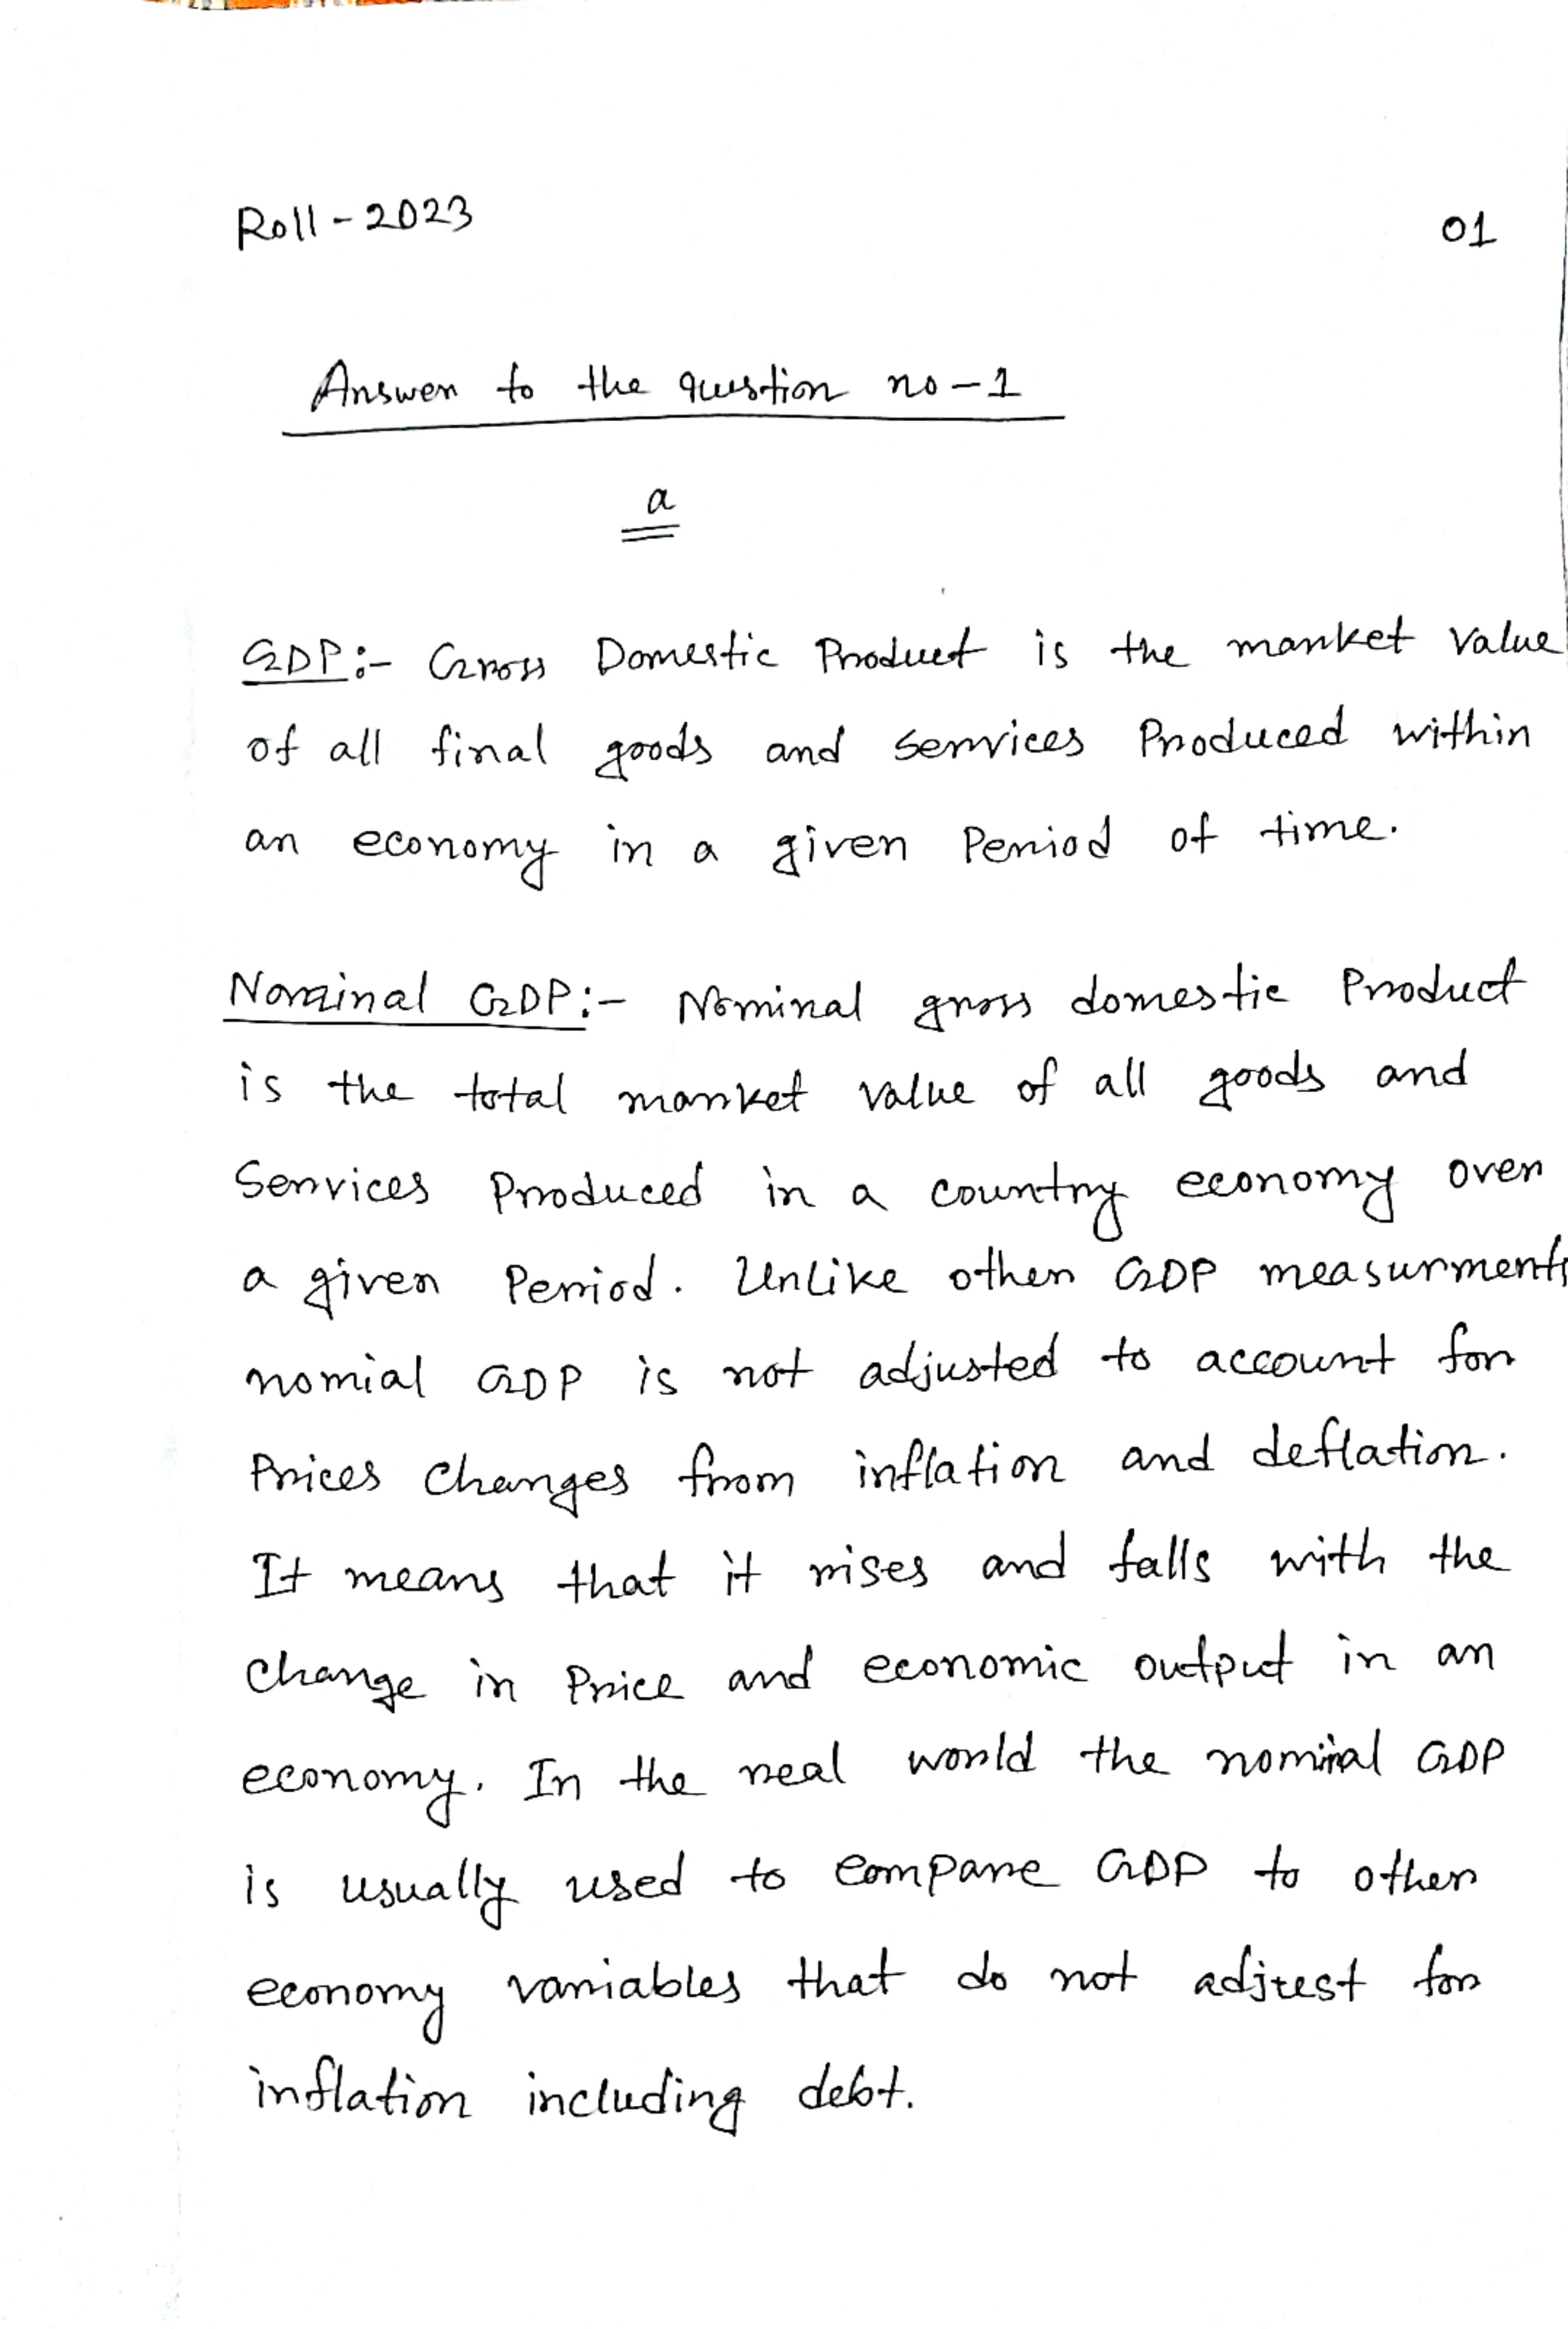 Roll - 2023
01
Answer to the question no - 1
a
GDP:- Gross Domestic Product is the market value
of all final goods and services Produced within
an economy in a given Period of time.
Nominal GDP:- Nominal gross domestic Product
is the total market value of all goods and
Services Produced in a country economy over
a given Period. Unlike other GDP measurments
nomial GDP is not adjusted to account for
Prices changes from inflation and deflation.
It means that it rises and falls with the
change in Price and economic output in an
economy. In the real world the nominal GDP
is usually used to compare GDP to other
economy variables that do not adjust for
inflation including debt.